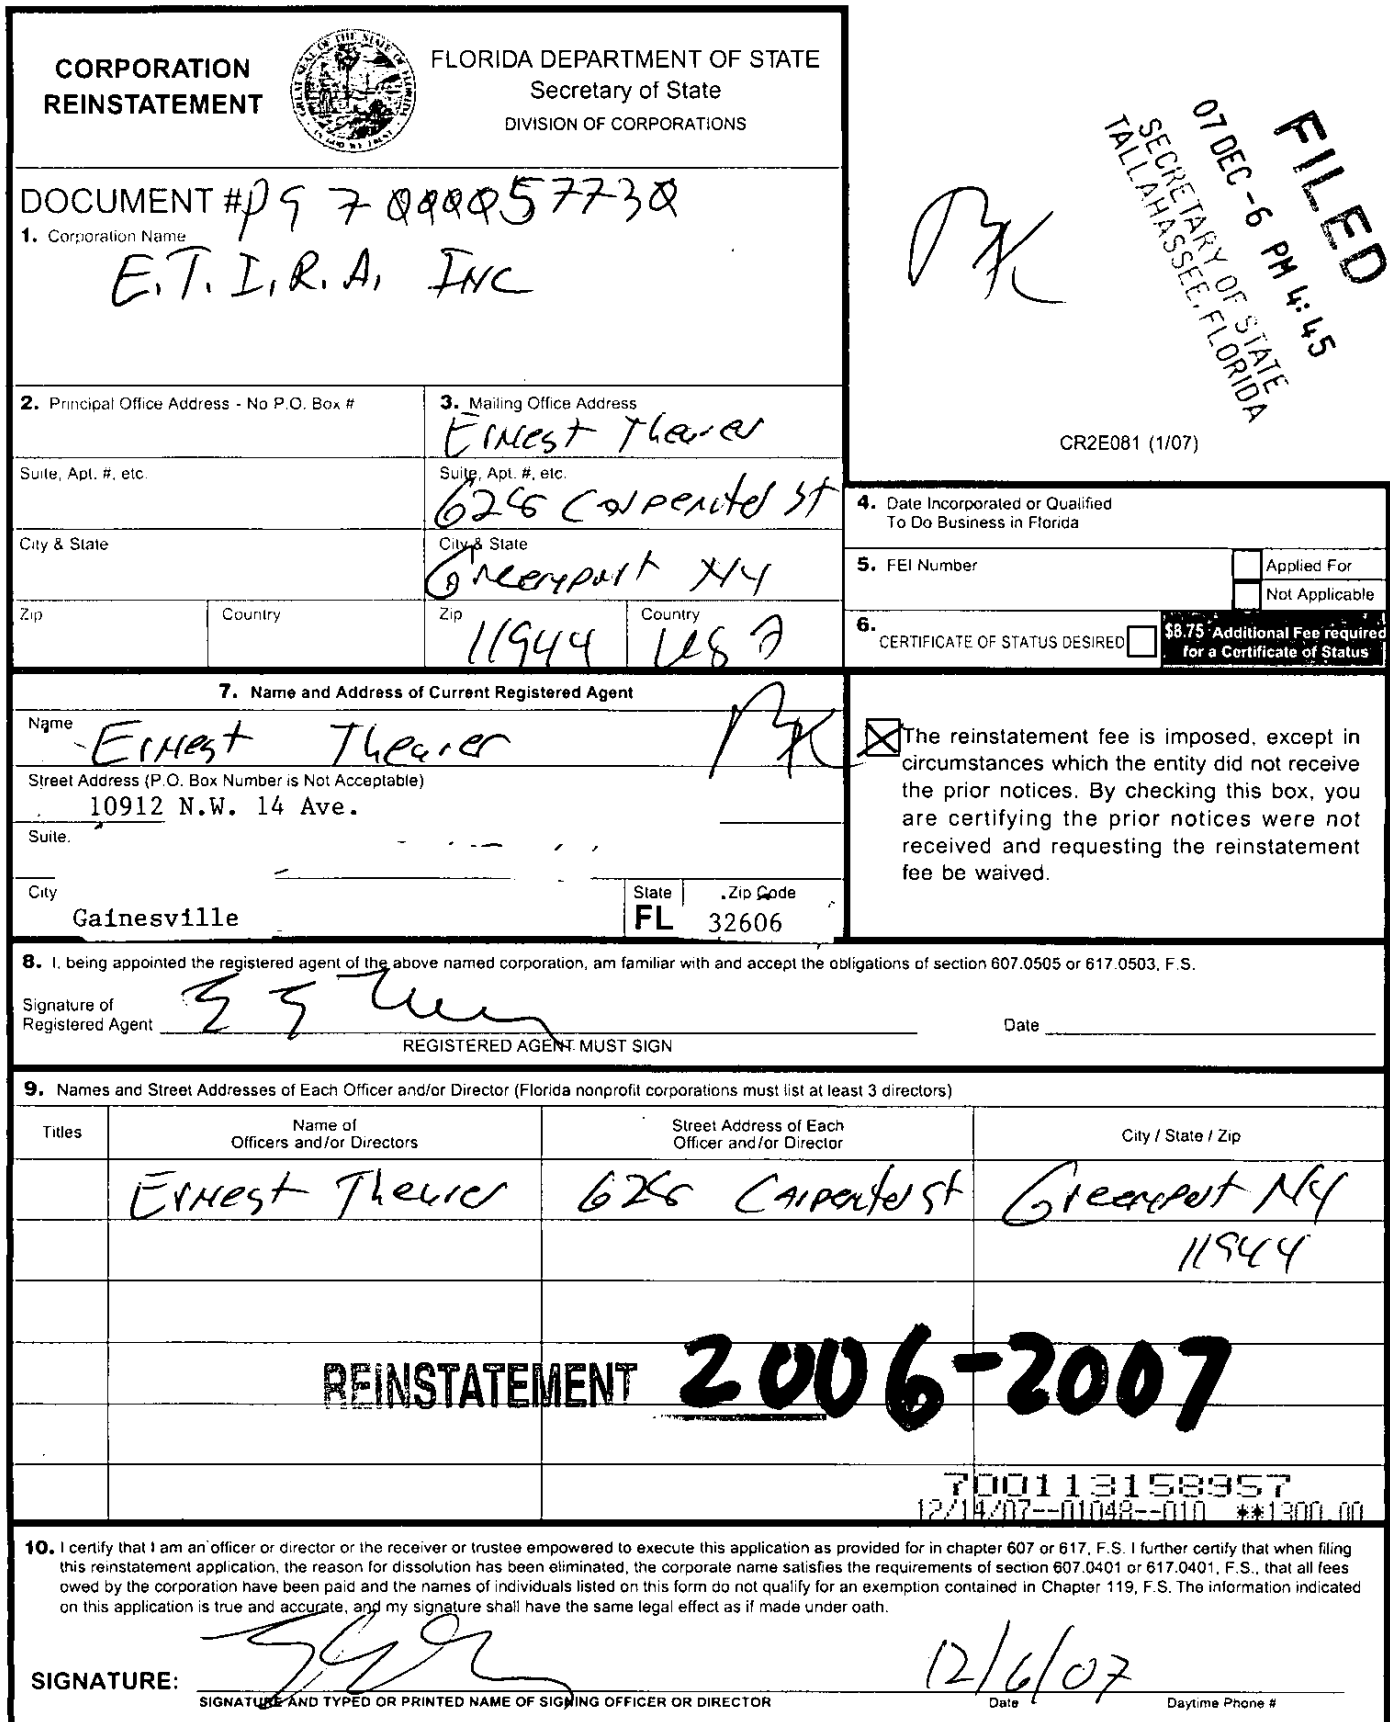 CORPORATION
REINSTATEMENT
FLORIDA DEPARTMENT OF STATE
Secretary of State
DIVISION OF CORPORATIONS
FILED
07 DEC -6 PM 4:45
SECRETARY OF STATE
TALLAHASSEE, FLORIDA
DOCUMENT # P97000057730
1. Corporation Name
E.T.I.R.A. INC
CR2E081 (1/07)
2. Principal Office Address - No P.O. Box #
3. Mailing Office Address
Ernest Theurer
Suite, Apt. #, etc.
Suite, Apt. #, etc.
Carpenter St
City & State
City & State
Greenport NY
Zip
Country
Zip
11944
Country
USA
4. Date Incorporated or Qualified
To Do Business in Florida
5. FEI Number
Applied For
Not Applicable
6. CERTIFICATE OF STATUS DESIRED
$8.75 Additional Fee required
for a Certificate of Status
7. Name and Address of Current Registered Agent
Name
Ernest Theurer
Street Address (P.O. Box Number is Not Acceptable)
10912 N.W. 14 Ave.
Suite.
City
Gainesville
State
FL
Zip Code
32606
The reinstatement fee is imposed, except in
circumstances which the entity did not receive
the prior notices. By checking this box, you
are certifying the prior notices were not
received and requesting the reinstatement
fee be waived.
8. I, being appointed the registered agent of the above named corporation, am familiar with and accept the obligations of section 607.0505 or 617.0503, F.S.
Signature of
Registered Agent
Date
REGISTERED AGENT MUST SIGN
9. Names and Street Addresses of Each Officer and/or Director (Florida nonprofit corporations must list at least 3 directors)
Titles
Name of
Officers and/or Directors
Street Address of Each
Officer and/or Director
City / State / Zip
Ernest Theurer
Carpenter St
Greenport NY
11944
REINSTATEMENT 2006-2007
700113158957
12/14/07--01048--010 **1300.00
10. I certify that I am an officer or director or the receiver or trustee empowered to execute this application as provided for in chapter 607 or 617, F.S. I further certify that when filing
this reinstatement application, the reason for dissolution has been eliminated, the corporate name satisfies the requirements of section 607.0401 or 617.0401, F.S., that all fees
owed by the corporation have been paid and the names of individuals listed on this form do not qualify for an exemption contained in Chapter 119, F.S. The information indicated
on this application is true and accurate, and my signature shall have the same legal effect as if made under oath.
SIGNATURE:
12/6/07
SIGNATURE AND TYPED OR PRINTED NAME OF SIGNING OFFICER OR DIRECTOR
Date
Daytime Phone #